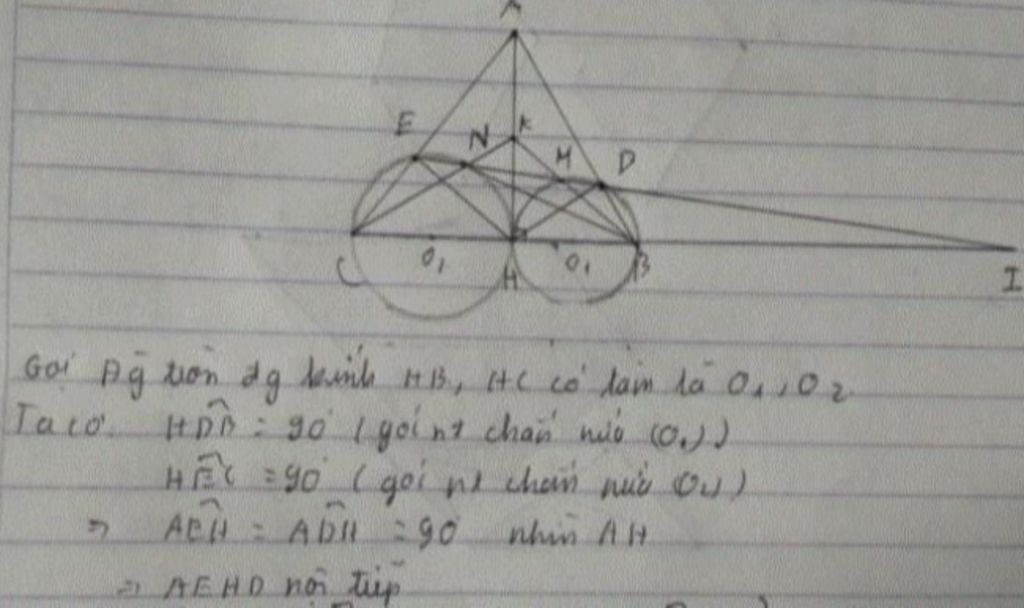 A
E N K M D
C O₁ H O₁ B I
Gọi Đg tròn đg kính HB, HC có tâm là O₁, O₂
Ta có: HDB = 90° (góc nt chắn nửa (O₁))
HEC = 90° (góc nt chắn nửa (O₂))
⇒ AEH = ADH = 90° nhìn AH
⇒ AEHD nội tiếp